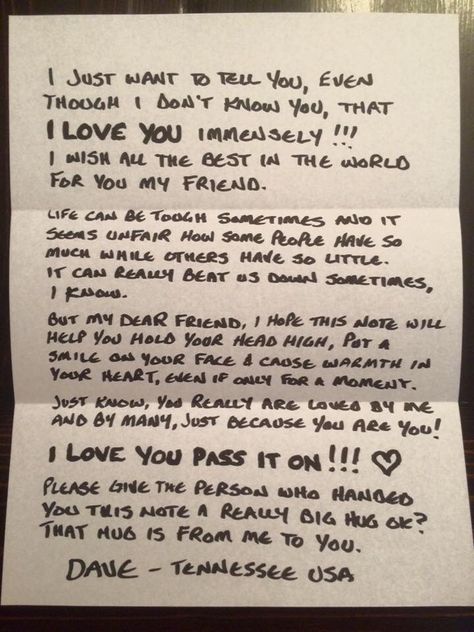 I JUST WANT TO TELL YOU, EVEN
THOUGH I DON'T KNOW YOU, THAT
I LOVE YOU IMMENSELY!!!
I WISH ALL THE BEST IN THE WORLD
FOR YOU MY FRIEND.
LIFE CAN BE TOUGH SOMETIMES AND IT
SEEMS UNFAIR HOW SOME PEOPLE HAVE SO
MUCH WHILE OTHERS HAVE SO LITTLE.
IT CAN REALLY BEAT US DOWN SOMETIMES,
I KNOW.
BUT MY DEAR FRIEND, I HOPE THIS NOTE WILL
HELP YOU HOLD YOUR HEAD HIGH, PUT A
SMILE ON YOUR FACE & CAUSE WARMTH IN
YOUR HEART, EVEN IF ONLY FOR A MOMENT.
JUST KNOW, YOU REALLY ARE LOVED BY ME
AND BY MANY, JUST BECAUSE YOU ARE YOU!
I LOVE YOU PASS IT ON!!! ♡
PLEASE GIVE THE PERSON WHO HANDED
YOU THIS NOTE A REALLY BIG HUG OK?
THAT HUG IS FROM ME TO YOU.
DAVE - TENNESSEE USA